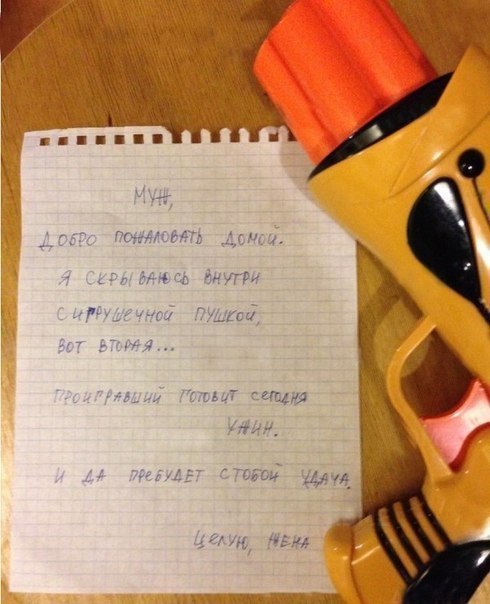 МУЖ,
ДОБРО ПОЖАЛОВАТЬ ДОМОЙ.
Я СКРЫВАЮСЬ ВНУТРИ
С ИГРУШЕЧНОЙ ПУШКОЙ,
ВОТ ВТОРАЯ...
ПРОИГРАВШИЙ ГОТОВИТ СЕГОДНЯ
УЖИН.
И ДА ПРЕБУДЕТ С ТОБОЙ УДАЧА.
ЦЕЛУЮ, ЖЕНА